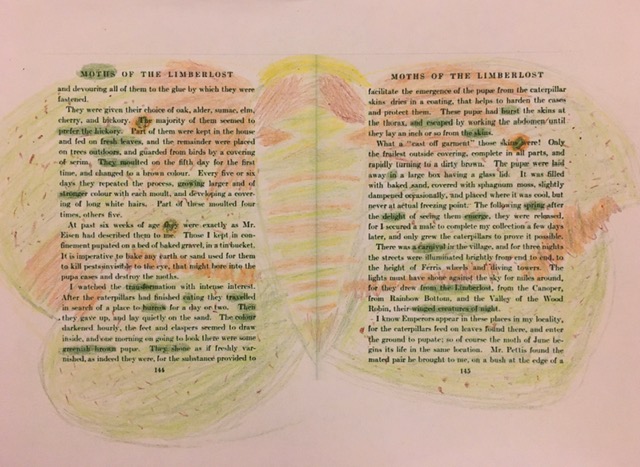 MOTHS OF THE LIMBERLOST
and devouring all of them to the glue by which they were
fastened.
They were given their choice of oak, alder, sumac, elm,
cherry, and hickory. The majority of them seemed to
prefer the hickory. Part of them were kept in the house
and fed on fresh leaves, and the remainder were placed
on trees outdoors, and guarded from birds by a covering
of scrim. They moulted on the fifth day for the first
time, and changed to a brown colour. Every five or six
days they repeated the process, growing larger and of
stronger colour with each moult, and developing a cover-
ing of long white hairs. Part of these moulted four
times, others five.
At past six weeks of age they were exactly as Mr.
Eisen had described them to me. Those I kept in con-
finement pupated on a bed of baked gravel, in a tin bucket.
It is imperative to bake any earth or sand used for them
to kill pests invisible to the eye, that might bore into the
pupa cases and destroy the moths.
I watched the transformation with intense interest.
After the caterpillars had finished eating they travelled
in search of a place to burrow for a day or two. Then
they gave up, and lay quietly on the sand. The colour
darkened hourly, the feet and claspers seemed to draw
inside, and one morning on going to look there were some
greenish brown pupæ. They shone as if freshly var-
nished, as indeed they were, for the substance provided to
144
MOTHS OF THE LIMBERLOST
facilitate the emergence of the pupæ from the caterpillar
skins dries in a coating, that helps to harden the cases
and protect them. These pupæ had burst the skins at
the thorax, and escaped by working the abdomen until
they lay an inch or so from the skins.
What a "cast off garment" those skins were! Only
the frailest outside covering, complete in all parts, and
rapidly turning to a dirty brown. The pupæ were laid
away in a large box having a glass lid. It was filled
with baked sand, covered with sphagnum moss, slightly
dampened occasionally, and placed where it was cool, but
never at actual freezing point. The following spring after
the delight of seeing them emerge, they were released,
for I secured a male to complete my collection a few days
later, and only grew the caterpillars to prove it possible.
There was a carnival in the village, and for three nights
the streets were illuminated brightly from end to end, to
the height of Ferris wheels and diving towers. The
lights must have shone against the sky for miles around,
for they drew from the Limberlost, from the Canoper,
from Rainbow Bottom, and the Valley of the Wood
Robin, their winged creatures of night.
I know Emperors appear in these places in my locality,
for the caterpillars feed on leaves found there, and enter
the ground to pupate; so of course the moth of June be-
gins its life in the same location. Mr. Pettis found the
mated pair he brought to me, on a bush at the edge of a
145